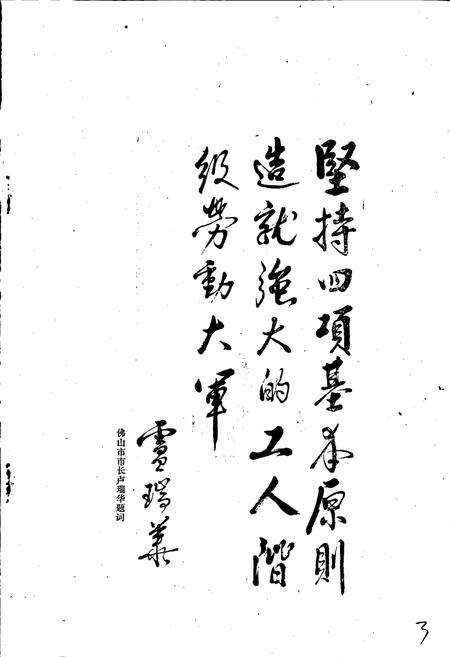 堅持四項基本原則
造就強大的工人階
級勞動大軍
盧瑞華
佛山市市长卢瑞华题词
3